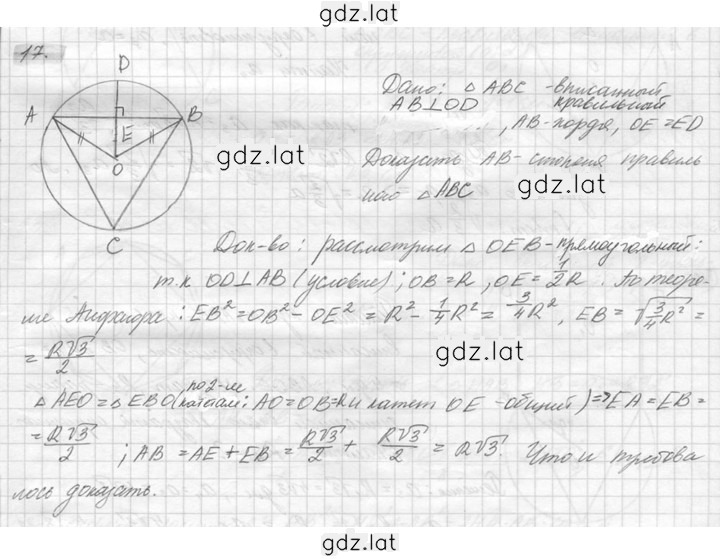 gdz.lat
17.
D
A
B
E
O
C
Дано: △ ABC - вписанный
AB⊥OD правильный
, AB-хорда, OE=ED
gdz.lat
Доказать AB-сторона правиль
ного △ABC
gdz.lat
Док-во: рассмотрим △ OEB-прямоугольный:
т.к OD⊥AB (условие); OB=R, OE=1/2R. По теоре-
ме Пифагора: EB²=OB²-OE² = R²-1/4R²= 3/4R², EB= √3/4R² =
= R√3/2
gdz.lat
△ AEO=△EBO(по 2-м катетам: AO=OB=R и катет OE -общий)=>EA=EB=
= R√3/2 ; AB =AE+EB = R√3/2 + R√3/2 = R√3. Что и требова
лось доказать.
gdz.lat